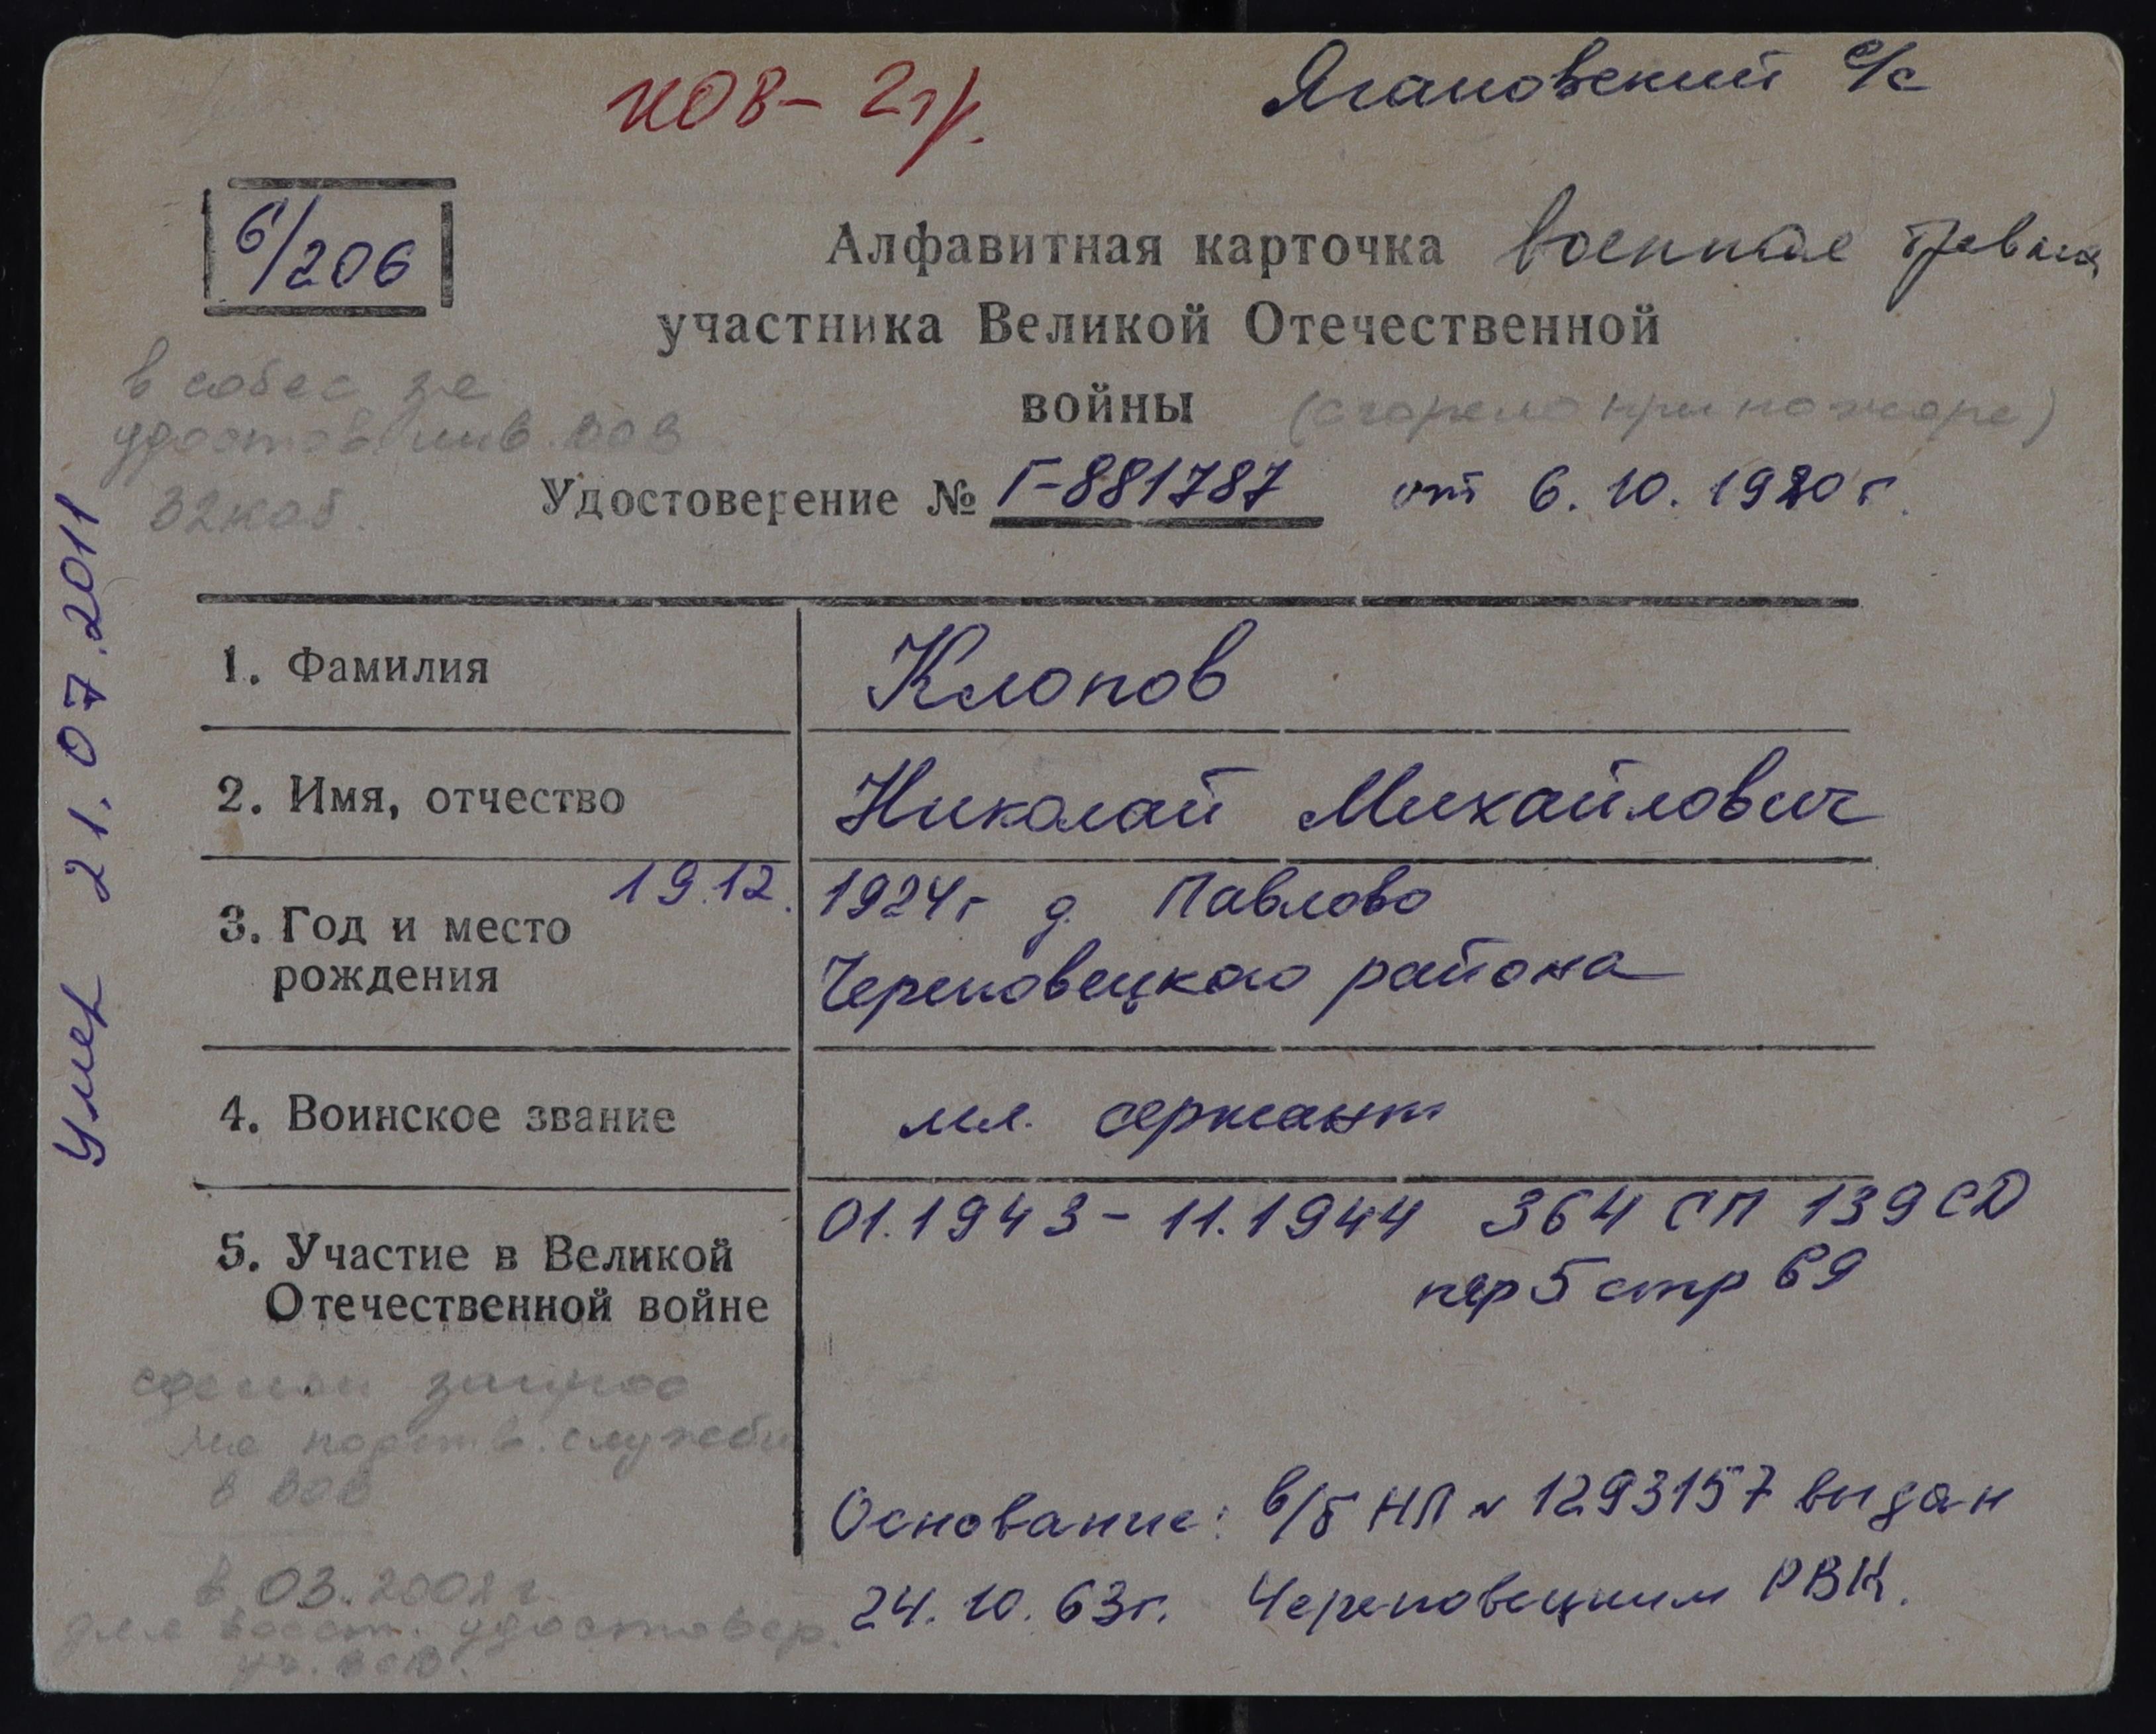 ИОВ - 2гр.
Ягановский с/с
6/206
Алфавитная карточка военная травма
участника Великой Отечественной
войны (сгорело при пожаре)
в собес за
удостов. инв. ВОВ
32 каб.
Удостоверение № Г-881787 от 6.10.1980 г.
Умер 21.07.2011
1. Фамилия Клопов
2. Имя, отчество Николай Михайлович
3. Год и место 19.12. 1924 г д. Павлово
рождения Череповецкого района
4. Воинское звание мл. сержант
5. Участие в Великой 01.1943 - 11.1944 364 СП 139 СД
Отечественной войне пер 5 стр 69
сделан запрос
на подтв. службы
в ВОВ
Основание: в/б НЛ № 1293157 выдан
24.10.63г. Череповецким РВК.
в 03.2002 г.
для восст. удостовер.
уч. ВОВ.